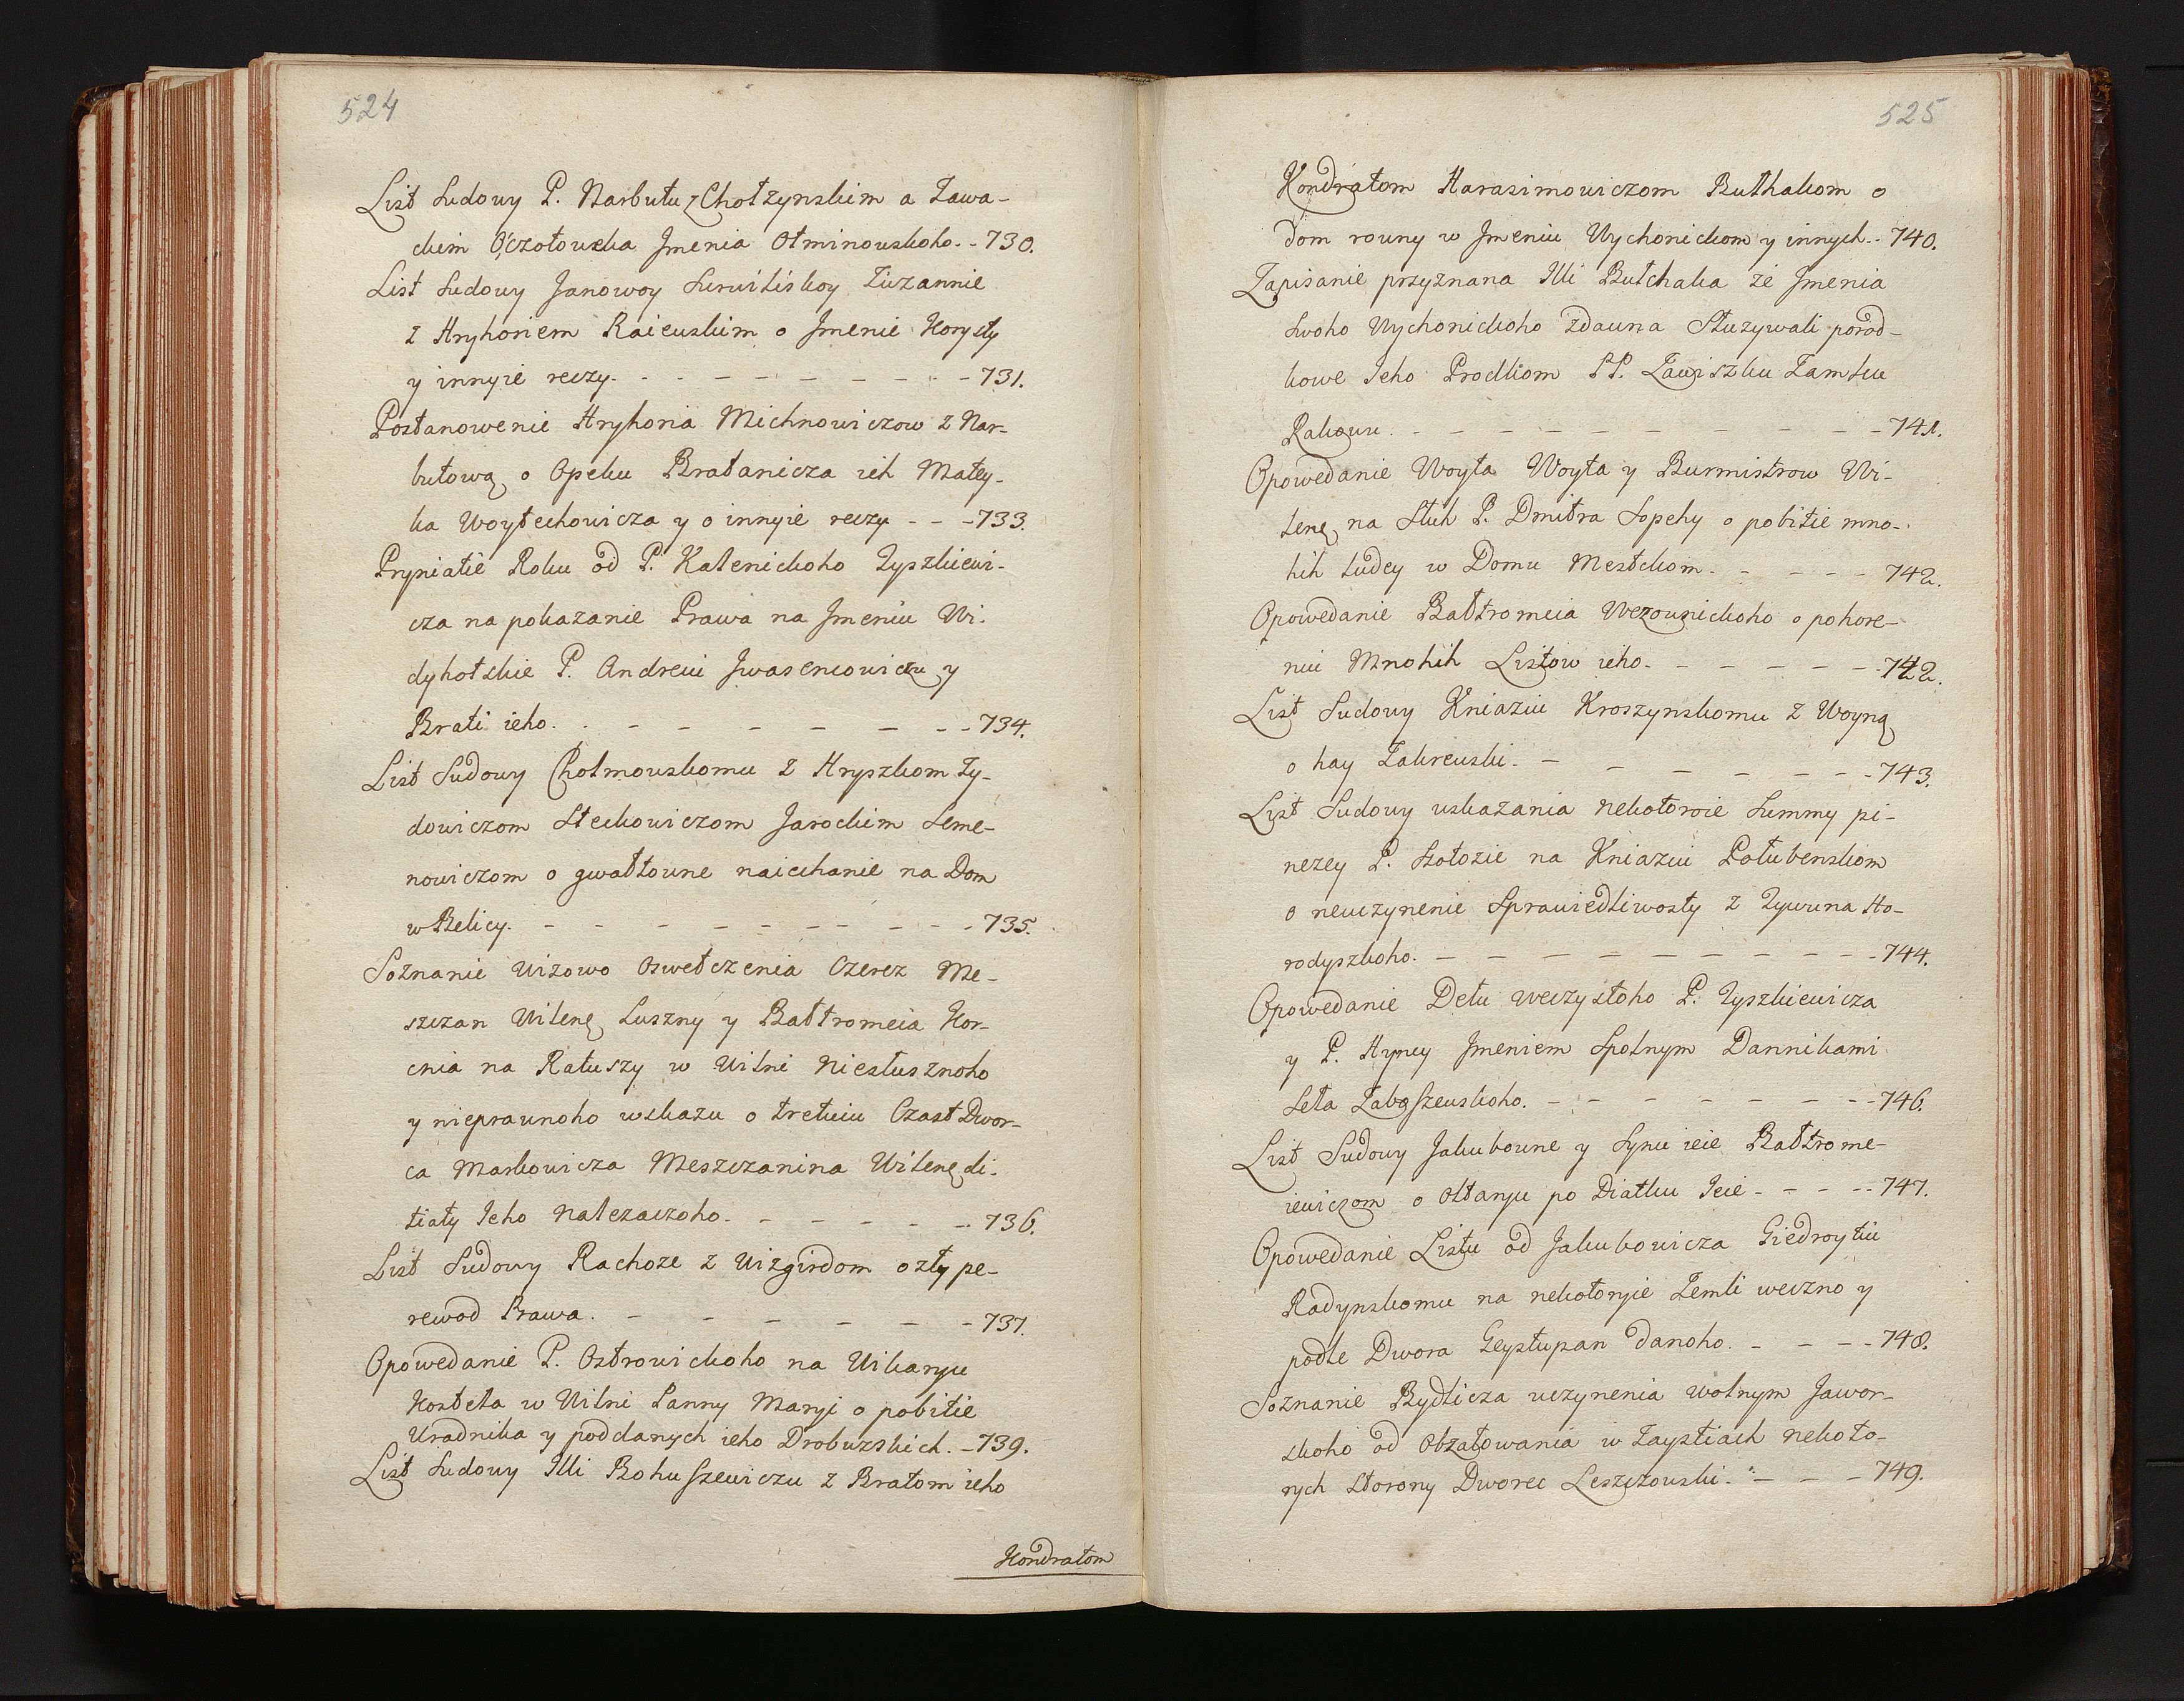 524
List Sudowy P. Narbutu z Chołzynskim a Zawa-
ckim Oczołowska Jmenia Otminowskoho - - 730.
List Sudowy Janowoy Zuzannie
z Hryhoriem Raiewskim o Jmenie Horysty
y innyie reczy - - - - - - - - 731.
Postanowenie Hryhoria Michnowiczow z Nar-
butową o Opeku Bratanicza ich Matey-
ka Woytechowicza y o innyie reczy - - - 733.
Pryniatie Roku od P. Kalenickoho Tyszkiewi-
cza na pokazanie Prawa na Jmeniu Wi-
dyhołskie P. Andreiu Jwasencowiczu y
Brati ieho. - - - - - - - 734.
List Sudowy Chołmowskomu z Hryszkom Zy-
dowiczom Steckowiczom Jarockim Seme-
nowiczom o gwałtowne naiechanie na Dom
w Belicy. - - - - - - - - - 735.
Soznanie Wizowo Oswetczenia Czerez Me-
szczan Wilenę Luszny y Bałtromeia Kor-
cnia na Ratuszy w Wilni Niesłusznoho
y nieprawnoho wskazu o tretuiu Czast Dwor-
ca Markowicza Meszczanina Wilenę di-
tiaty Jeho Nalezaczoho. - - - - - 736.
List Sudowy Rachoze z Wizgirdom o zły pe-
rewod Prawa. - - - - - - 737.
Opowedanie P. Ostrowickoho na Wikaryu
Kosteła w Wilni Panny Maryi o pobitie
Uradnika y poddanych ieho Drobuzskich. - 739.
List Sudowy Illi Bohuszewiczu z Bratom ieho
Kondratom
525
Kondratom Harasimowiczom Buthakom o
dom rowny w Jmeniu Wychonickom y innych - - 740.
Zapisanie przyznana Illi Butchaka ze Jmenia
Swoho Wychonickoho zdawna Słuzywali porad-
kowe Jeho Prodkom PP. Zawiszku Zamku
Rakowu. - - - - - - - - - 741.
Opowedanie Woyta Woyta y Burmistrow Wi-
lenę na Sluh P. Dmitra Sopehy o pobitie mno-
hih ludey w Domu Mestckom. - - - - 742.
Opowedanie Bałtromeia Wezownickoho o pohore-
nii Mnohih Listow ieho. - - - - - 742.
List Sudowy Kniaziu Kroszynskomu z Woyną
o hay Zakrewski. - - - - - - - 743.
List Sudowy wskazania Nekotoroie Summy pi-
nezey P. Szołozie na Kniaziu Połubenskom
o neuczynenie Sprawiedliwosty z Tywuna Ho-
rodyszkoho. - - - - - - - - - 744.
Opowedanie Dełu weczystoho P. Tyszkiewicza
y P. Hyncy Jmeniem Spolnym Dannikami
Seła Zabaszewskoho. - - - - - - - - 746.
List Sudowy Jakubowne y Synu ieie Bałtrome-
iewiczom o Ołtaryu po Diatku Jeie - - - - - 747.
Opowedanie Listu od Jakubowicza Giedroytiu
Radynskomu na nekotoryie Zemli weczno y
podle Dwora Geystupan danoho. - - - - 748.
Soznanie Bydlicza uczynenia wolnym Jawor-
skoho od Obzałowania w Zaystiach nekoto-
rych Storony Dworec Leszczowski. - - - 749.